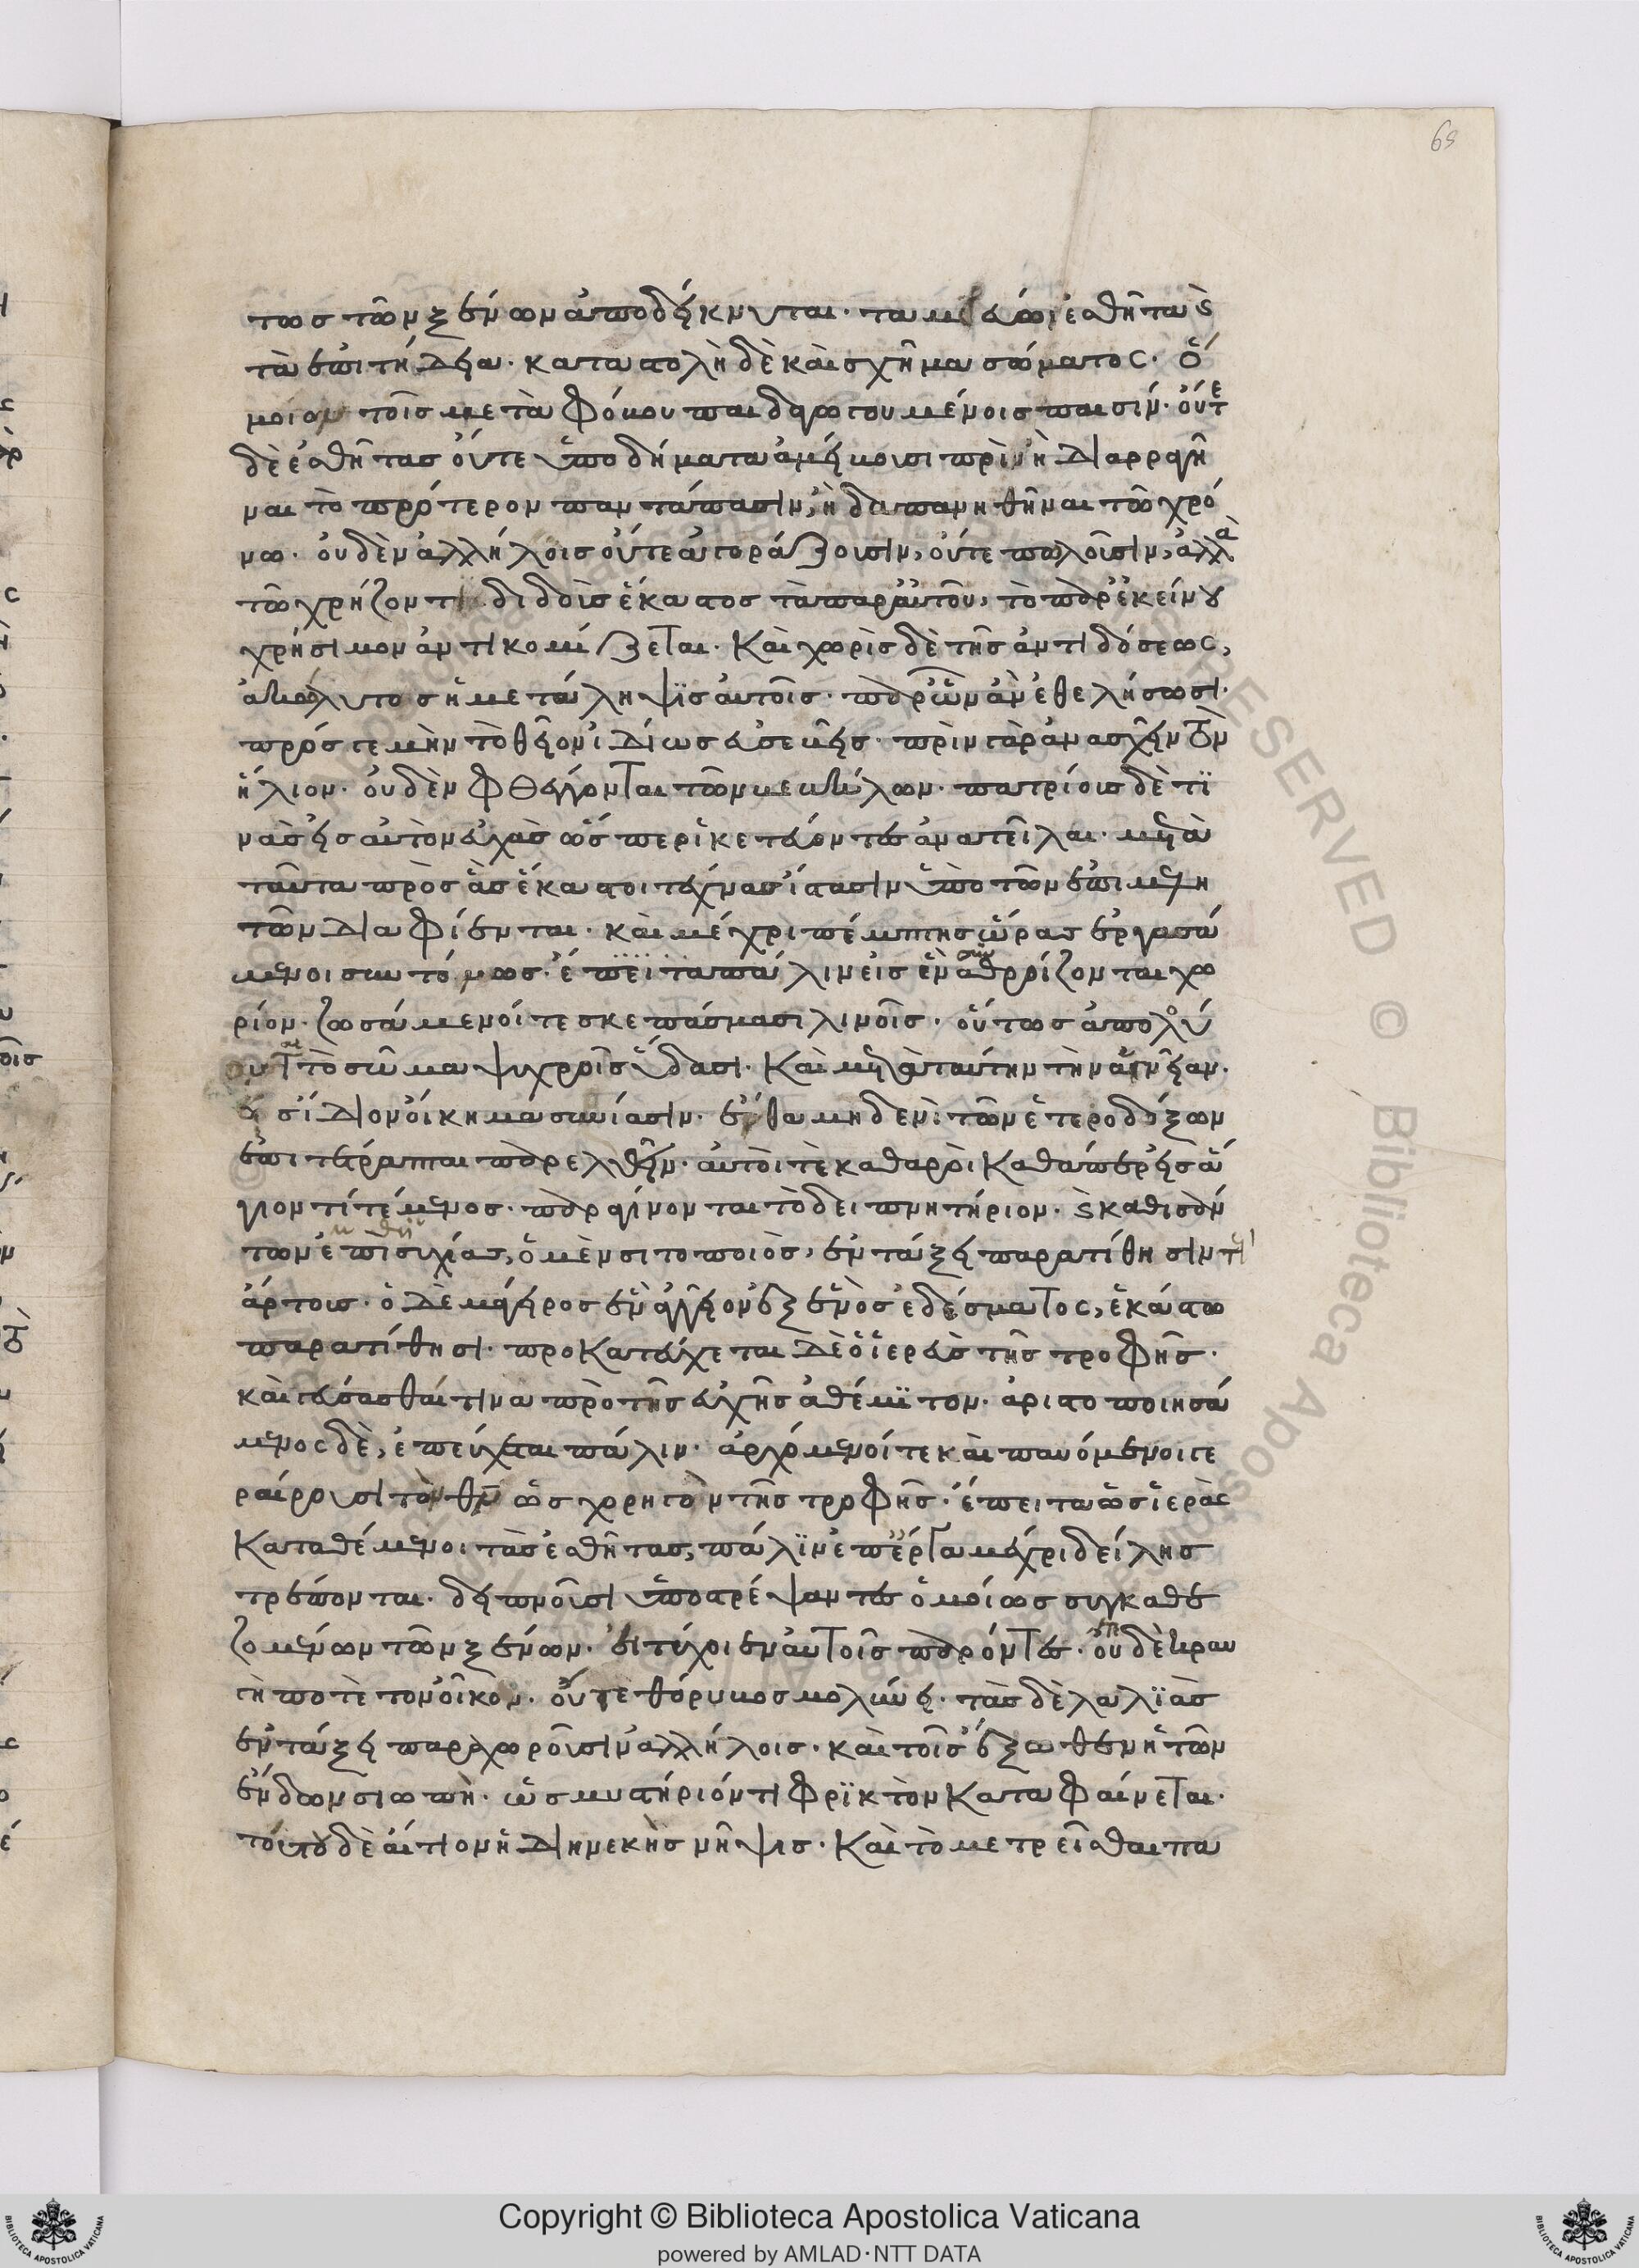 69
τως τῶν ξένων ἀποδείκνυται· ταμιεύων ἐσθῆτα καὶ
τὰ ἐπιτήδεια· καταστολὴ δὲ καὶ σχῆμα σώματος· ὅ
μοιον τοῖς μετὰ φόβου παιδαγωγουμένοις παισίν· οὔτε
δὲ ἐσθῆτας οὔτε ὑποδήματα ἀμείβουσι πρὶν ἢ διαρραγῆ
ναι τὸ πρότερον παντάπασιν, ἢ δαπανηθῆναι τῶ χρό
νω· οὐδὲν ἀλλήλοις οὔτε ἀγοράζουσιν, οὔτε πωλοῦσιν, ἀλλὰ
τῶ χρήζοντι διδοὺς ἕκαστος τὰ παρ' αὐτοῦ, τὸ παρ' ἐκείνου
χρήσιμον ἀντικομίζεται. Καὶ χωρὶς δὲ τῆς ἀντιδόσεως,
ἀκώλυτος ἡ μετάληψις αὐτοῖς· παρ' ὧν ἂν ἐθελήσωσι·
πρός γε μὴν τὸ θεῖον ἰδίως εὐσεβεῖς· πρὶν γὰρ ἀνασχεῖν τὸν
ἥλιον· οὐδὲν φθέγγονται τῶν βεβήλων· πατρίους δὲ τι
νὰς εἰς αὐτὸν εὐχὰς ὥσπερ ἱκετεύοντες ἀνατεῖλαι· μετὰ
ταῦτα πρὸς ἃς ἕκαστοι τέχνας ἴσασιν ὑπὸ τῶν ἐπιμελη
τῶν διαφίενται· καὶ μέχρι πέμπτης ὥρας ἐργασά
μενοι συντόνως· ἔπειτα πάλιν εἰς ἓν συναθροίζονται χω
ρίον· ζωσάμενοί τε σκεπάσμασι λινοῖς· οὕτως ἀπολού
νται τὸ σῶμα ψυχροῖς ὕδασι. Καὶ μετὰ ταύτην τὴν ἁγνείαν·
εἰς ἴδιον οἴκημα συνίασιν· ἔνθα μηδενὶ τῶν ἑτεροδόξων
ἐπιτέτραπται παρελθεῖν· αὐτοί τε καθαροὶ καθάπερ εἰς ἅ
γιόν τι τέμενος· παραγίνονται τὸ δειπνητήριον· καὶ καθισάν
των ἐπὶ συχίας, ὁ μὲν σιτοποιὸς, ἐν τάξει παρατίθησιν τοὺς
ἄρτους· ὁ δὲ μάγειρος ἓν ἀγγεῖον ἐξ ἑνὸς ἐδέσματος, ἑκάστω
παρατίθησι· προκατεύχεται δὲ ὁ ἱερεὺς τῆς τροφῆς·
καὶ γεύσασθαί τινα πρὸ τῆς εὐχῆς ἀθέμιτον· ἀριστοποιησά
μενος δὲ, ἐπεύχεται πάλιν· ἀρχόμενοί τε καὶ παυόμενοι γε
ραίρουσι τὸν θν ὡς χορηγὸν τῆς τροφῆς· ἔπειτα ὡς ἱερὰς
Καταθέμενοι τὰς ἐσθῆτας, πάλιν ἐπ' ἔργα μέχρι δείλης
τρέπονται· δειπνοῦσι ὑποστρέψαντες ὁμοίως συγκαθε
ζομένων τῶν ξένων· εἰ τύχοι ἐν αὐτοῖς παρόντες· οὐδὲ κραυ
γή ποτε τὸν οἶκον· οὔτε θόρυβος μολύνει· τὰς δὲ λαλιὰς
ἐν τάξει παραχωροῦσιν ἀλλήλοις· καὶ τοῖς ἔξωθεν ἡ τῶν
ἔνδον σιωπὴ· ὡς μυστήριόν τι φρικτὸν καταφαίνεται·
τούτου δὲ αἴτιον ἡ διηνεκὴς νῆψις· Καὶ τὸ μετρεῖσθαι πα
Copyright © Biblioteca Apostolica Vaticana
powered by AMLAD·NTT DATA